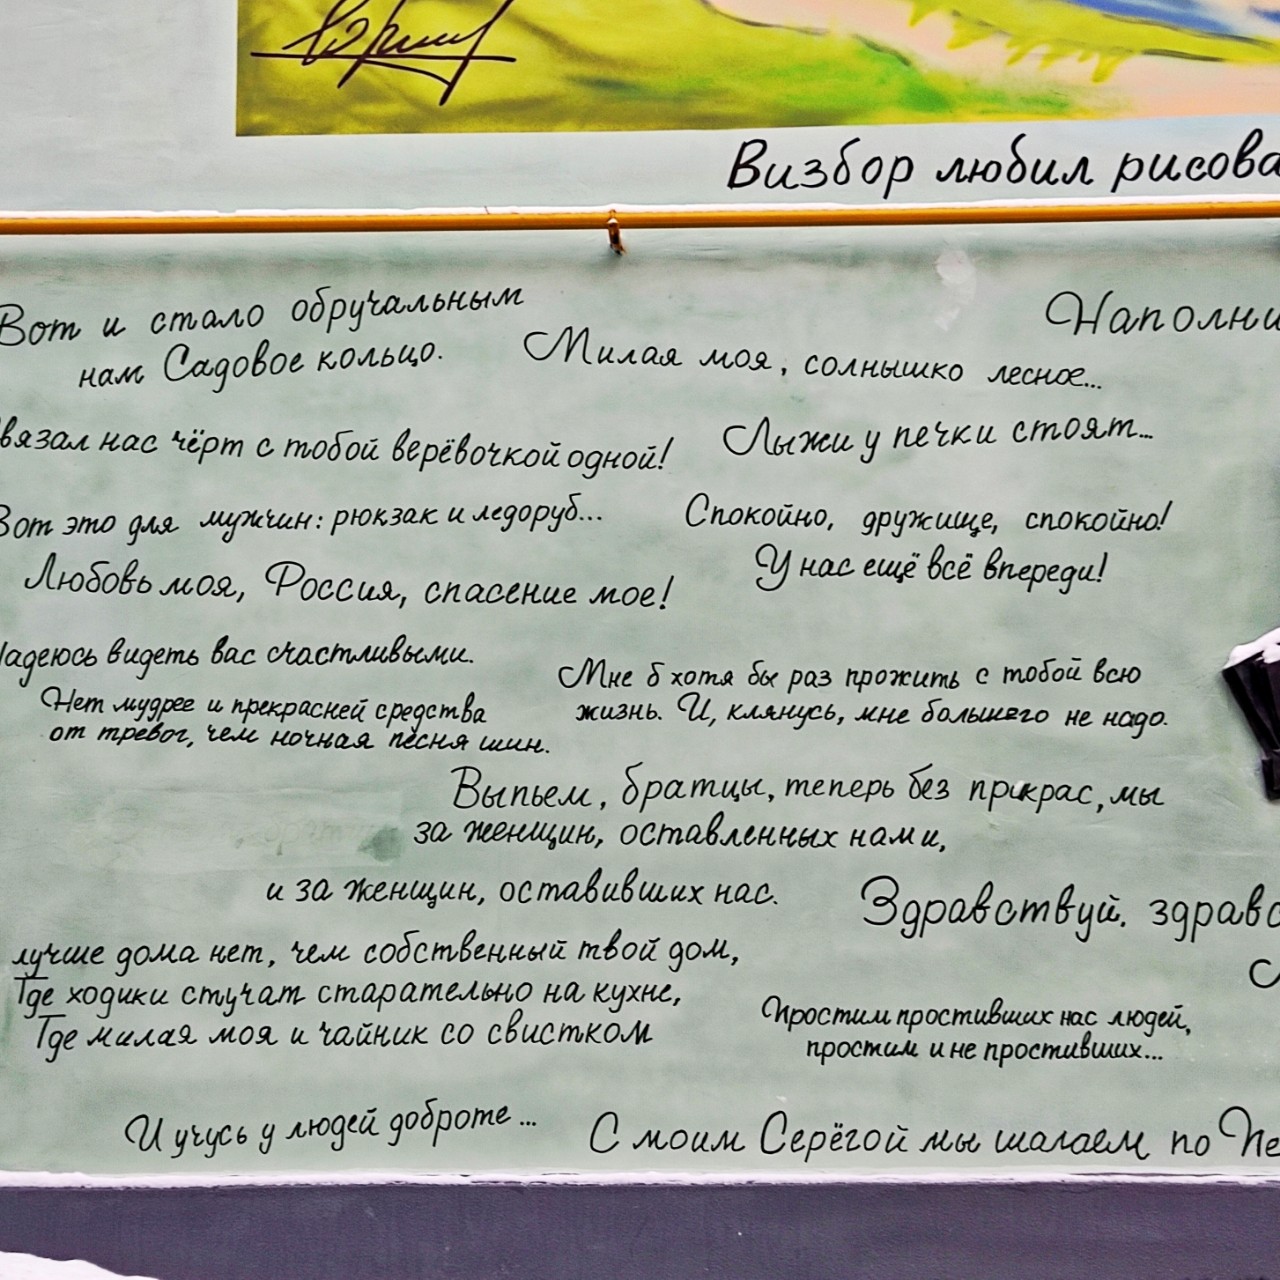 Визбор любил рисова
Вот и стало обручальным
нам Садовое кольцо.
Милая моя, солнышко лесное...
Наполни
вязал нас чёрт с тобой верёвочкой одной!
Лыжи у печки стоят...
Вот это для мужчин: рюкзак и ледоруб...
Спокойно, дружище, спокойно!
У нас ещё всё впереди!
Любовь моя, Россия, спасение мое!
адеюсь видеть вас счастливыми.
Нет мудрее и прекрасней средства
от тревог, чем ночная песня шин.
Мне б хотя бы раз прожить с тобой всю
жизнь. И, клянусь, мне большего не надо.
Выпьем, братцы, теперь без прикрас, мы
за женщин, оставленных нами,
и за женщин, оставивших нас.
Здравствуй, здравс
лучше дома нет, чем собственный твой дом,
Где ходики стучат старательно на кухне,
Где милая моя и чайник со свистком
Простим простивших нас людей,
простим и не простивших...
И учусь у людей доброте...
С моим Серёгой мы шагаем по Пе